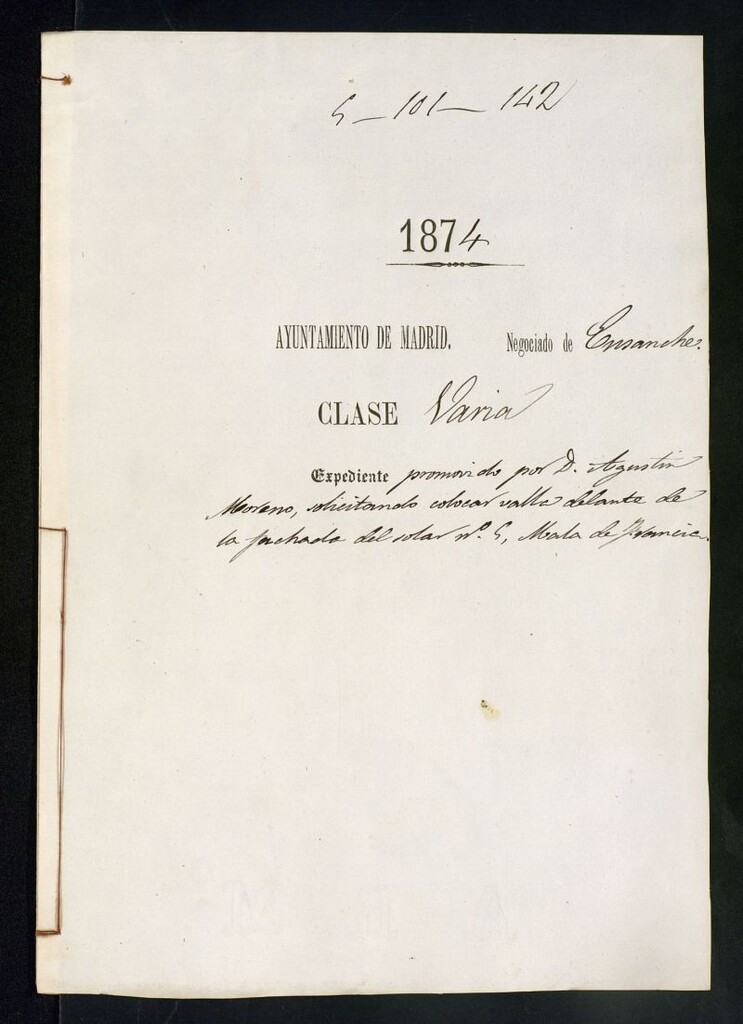 5 - 101 - 142
1874
AYUNTAMIENTO DE MADRID. Negociado de Ensanche.
CLASE Varia
Expediente promovido por D. Agustin
Moreno, solicitando colocar valla delante de
la fachada del solar nº. 5, Mala de Francia.